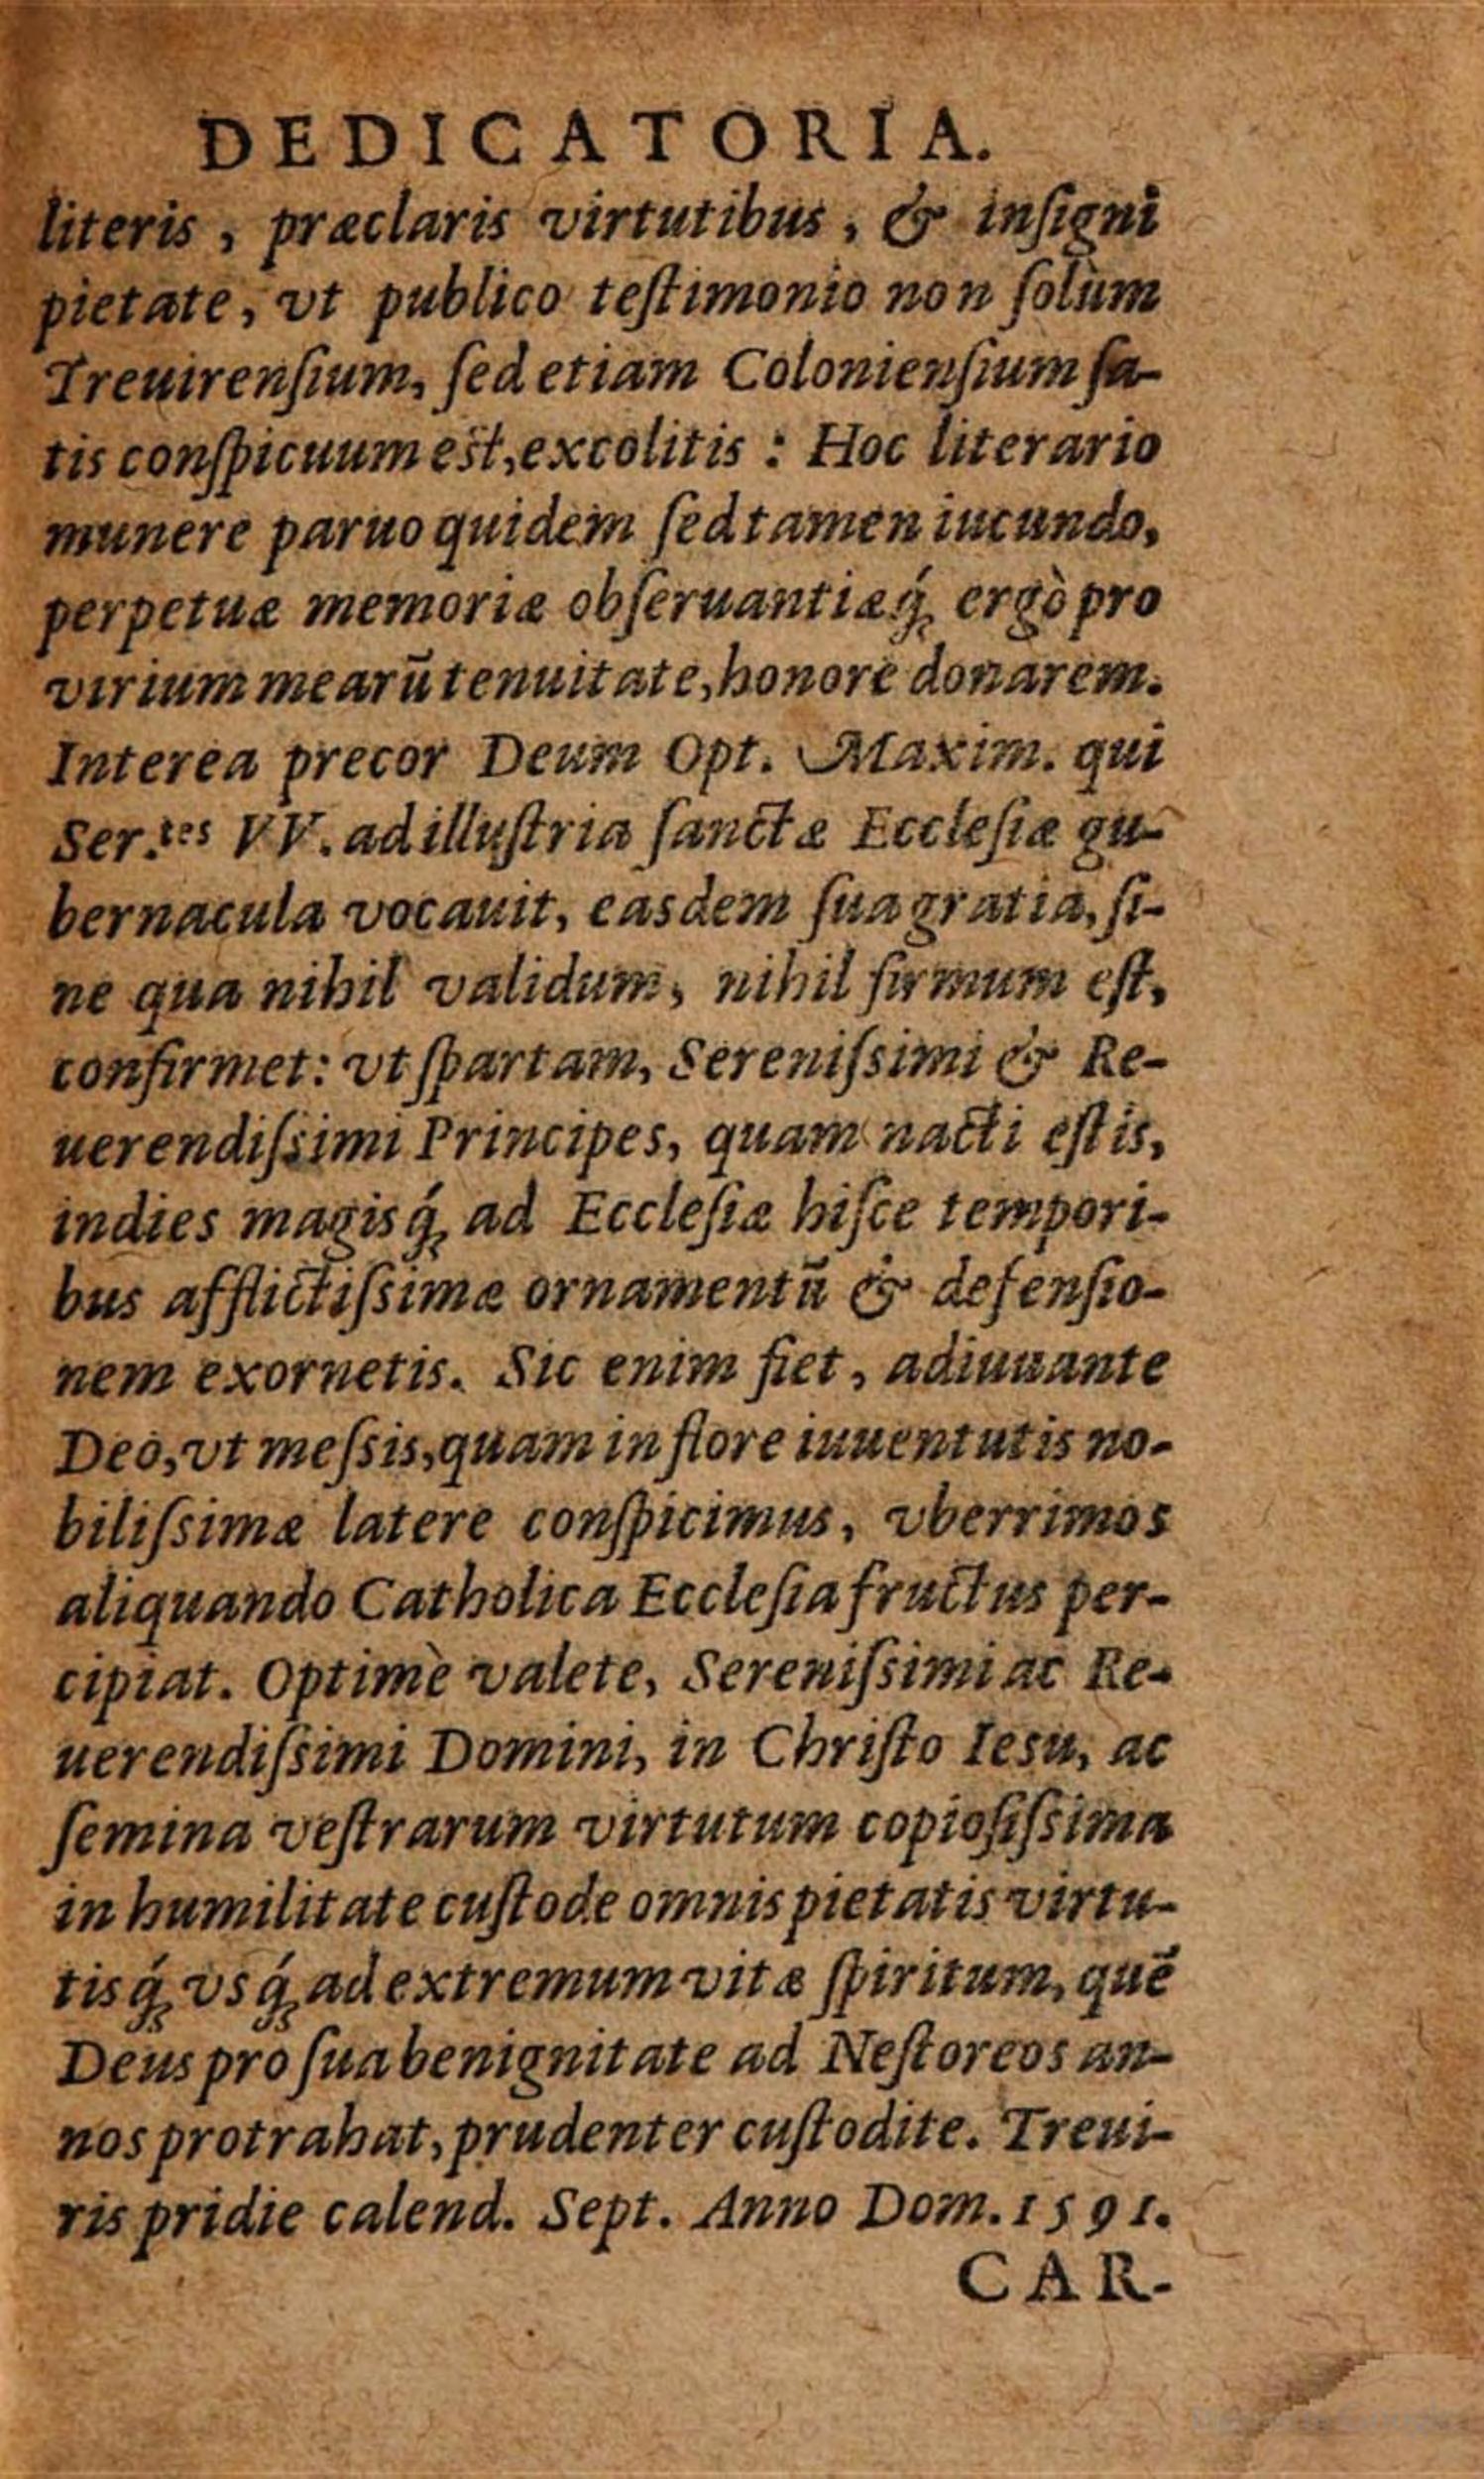 DEDICATORIA.
literis, præclaris virtutibus, & inſigni
pietate, vt publico teſtimonio non ſolùm
Treuirenſium, ſed etiam Colonienſium ſa-
tis conſpicuum est, excolitis : Hoc literario
munere paruo quidem ſed tamen iucundo,
perpetuæ memoriæ obſeruantiæq́; ergò pro
virium mearū tenuitate, honore donarem.
Interea precor Deum Opt. Maxim. qui
Ser.tes VV. ad illuſtria ſanctæ Eccleſiæ gu-
bernacula vocauit, easdem ſua gratia, ſi-
ne qua nihil validum, nihil firmum eſt,
confirmet: vt ſpartam, Sereniſsimi & Re-
uerendiſsimi Principes, quam nacti eſtis,
indies magisq́; ad Eccleſiæ hiſce tempori-
bus afflictiſsimæ ornamentū & defenſio-
nem exornetis. Sic enim fiet, adiuuante
Deo, vt meſsis, quam in flore iuuentutis no-
biliſsimæ latere conſpicimus, vberrimos
aliquando Catholica Eccleſia fructus per-
cipiat. Optimè valete, Sereniſsimi ac Re-
uerendiſsimi Domini, in Chriſto Iesu, ac
ſemina veſtrarum virtutum copioſiſsima
in humilitate cuſtode omnis pietatis virtu-
tisq́; vsq́; ad extremum vitæ ſpiritum, quē
Deus pro ſua benignitate ad Neſtoreos an-
nos protrahat, prudenter cuſtodite. Treui-
ris pridie calend. Sept. Anno Dom. 1591.
CAR-